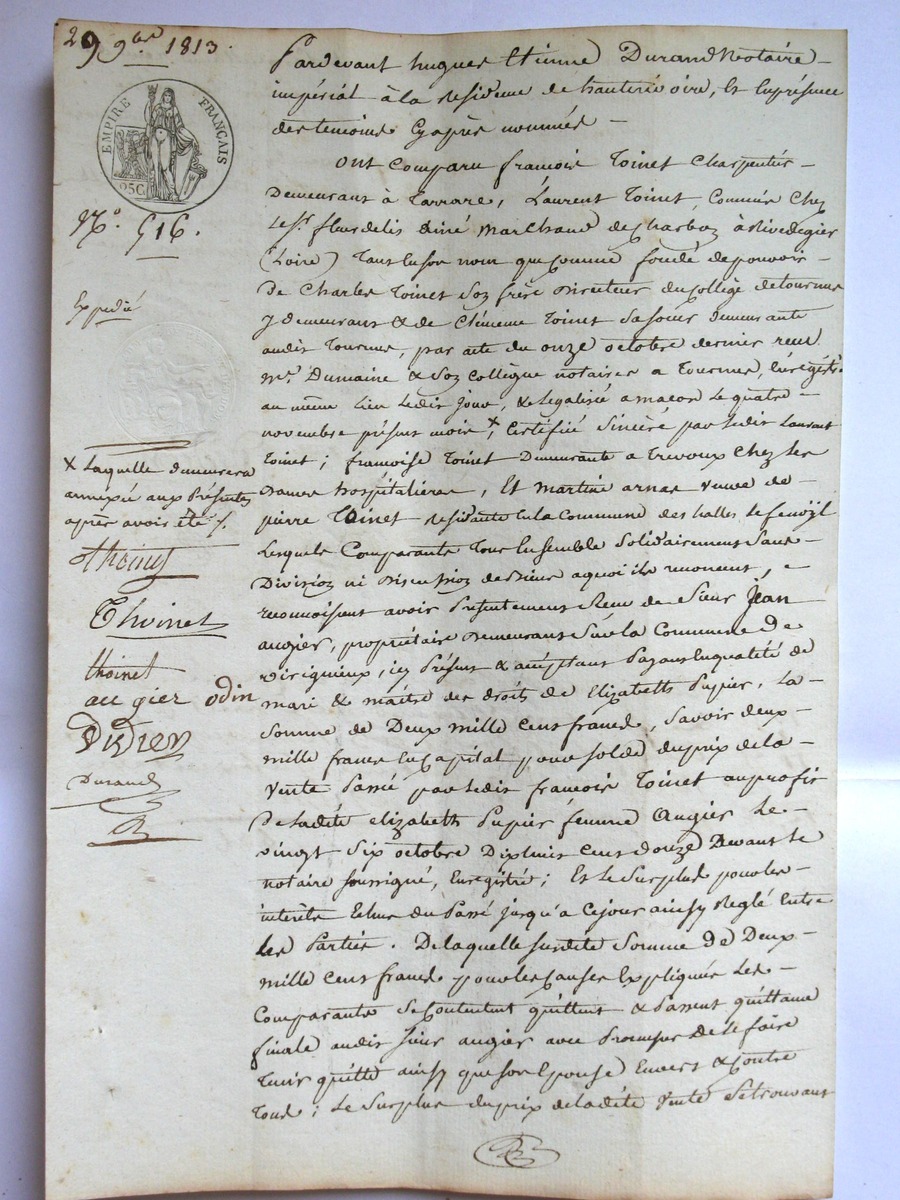 29 9bre 1813.
EMPIRE FRANÇAIS
25C
N.° 516.
Expedié
Pardevant hugues Etienne Durand Notaire
impérial à la residence de hauterivoire, et En présence
des temoins Cy après nommés
Ont Comparu françois Toinet Charpentier
Demeurant à Tarrare, Laurent Toinet, Commis Chez
le Sr. fleurdelis ainé Marchand de Charbon à Rivedegier
(Loire) Tant En son nom que Comme fondé de pouvoir
De Charles Toinet Son frère Directeur du Collège de tournus
y demeurant & de Clémence Toinet Sa soeur demeurante
audit Tournus, par acte du onze octobre dernier reçu
Me. Dumaine & Son Collègue notaires a Tournus, Enrégistré
au même lieu ledit jour, & legalisé a macon Le quatre
novembre présent mois x, Certifié Sincère par ledit Laurent
Toinet; françoise Toinet Demeurante a Trevoux Chez les
Dames hospitalières, Et Martine arnas veuve de
pierre Toinet residante En la Commune des halles le fenoÿl
Lesquels Comparants Tous Ensemble Solidairement Sans
Division ni Discussion de Biens a quoi ils renoncent,
reconnoissent avoir Présentement Reçu de Sieur Jean
augier, propriétaire Demeurant Sur la Commune de
virigneux, icy Présent & acceptant Payant En qualité de
mari & maitre des droits de Elizabeth Pupier, La
Somme de Deux mille Cent francs, Savoir deux
mille francs En Capital pour Solde du prix de la
vente Passé par ledit françois Toinet au profit
De ladite Elizabeth Pupier femme Augier Le
vingt Six octobre Dixhuit Cent Douze Devant le
notaire Soussigné, Enregistré; Et le Surplus pour les
interêts Echus du Passé jusqu'a Cejour ainsy Reglé Entre
les Parties. De laquelle Susdite Somme de Deux
mille Cent francs pour les Causes Expliquées Les
Comparants Se Contentent quittent & Passent quittance
finale audit Sieur augier avec Promesse De le faire
Tenir quitte ainsy que son Epouse Envers & Contre
Tous; Le Surplus du prix de ladite vente Se trouvant
x Laquelle demeurera
annexée aux Présentes
après avoir été /.
thoinet
Thoinet
thoinet
au gier odin
Didier
Durand